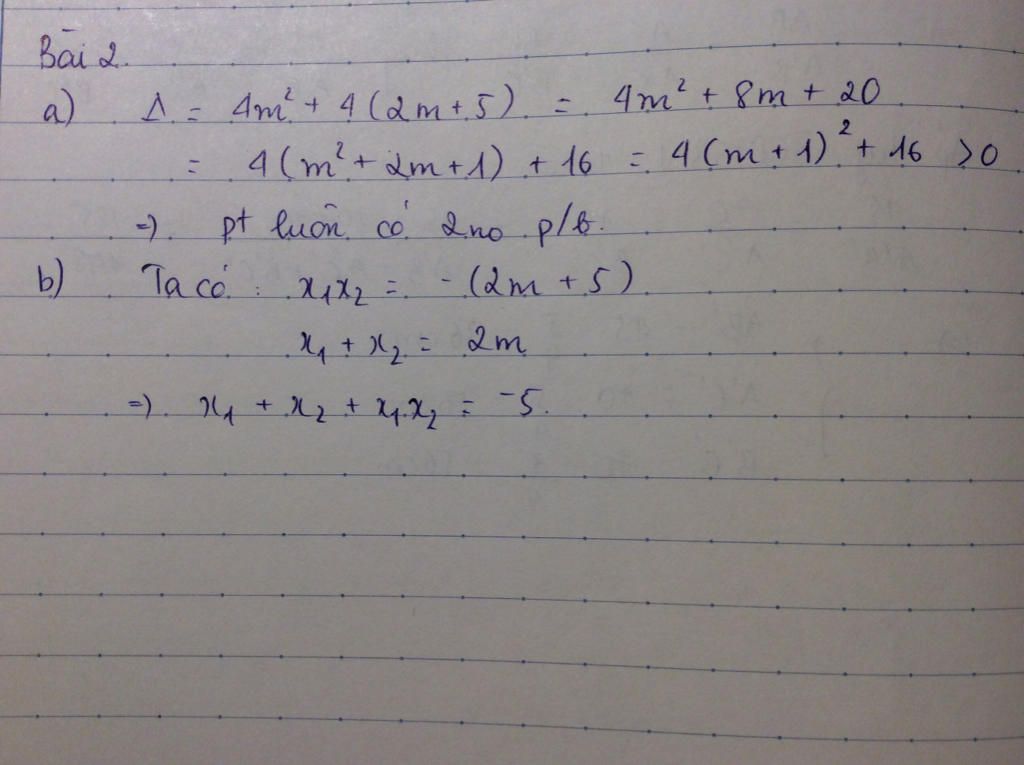 Bài 2.
a) Δ = 4m² + 4(2m+5) = 4m² + 8m + 20
= 4(m² + 2m + 1) + 16 = 4(m+1)² + 16 >0
=> pt luôn có 2no p/b.
b) Ta có : x₁x₂ = -(2m + 5)
x₁ + x₂ = 2m
=> x₁ + x₂ + x₁.x₂ = -5.